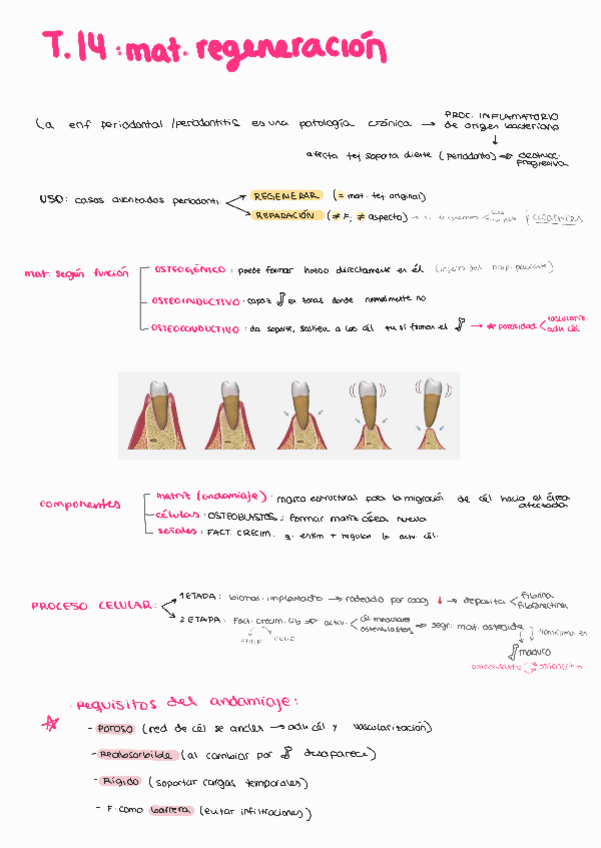 T.14: mat. regeneración
La enf periodontal/periodontitis es una patología crónica → PROC. INFLAMATORIO
de origen bacteriano
↓
afecta tej soporta diente (periodonto) → destrucc.
progresiva
USO: casos avanzados periodonti.
REGENERAR (= mat. tej original)
REPARACIÓN (≠ F, ≠ aspecto) → cicatrices
mat. según función
OSTEOGÉNICO: puede formar hueso directamente es él (injerto del prop. paciente)
OSTEOINDUCTIVO: capaz en zonas donde normalmente no
OSTEOCONDUCTIVO: da soporte, sostien a las cél tu si forman el → porosidad
vasculariz.
adh cél
componentes
matriz (andamiaje): marco estructural para la migración de cél hacia el área
afectada
células: OSTEOBLASTOS: formar matriz ósea nueva
señales: FACT. CRECIM. q. estim + regular la activ. cél.
PROCESO CELULAR:
1 ETAPA: biomat. implantado → rodeado por coag → deposita
fibrina
fibronectina
2 ETAPA: Fact. crecim. lib ⇒ activ.
cél medulares
osteoblastos
⇒ segr. mat. osteoide
transforma en
maduro
Requisitos del andamiaje:
- Poroso (red de cél se anclen → adh cél y vascularización)
- Reabsorbible (al cambiar por desaparece)
- Rígido (soportar cargas temporales)
- F. como barrera (evitar infiltraciones)